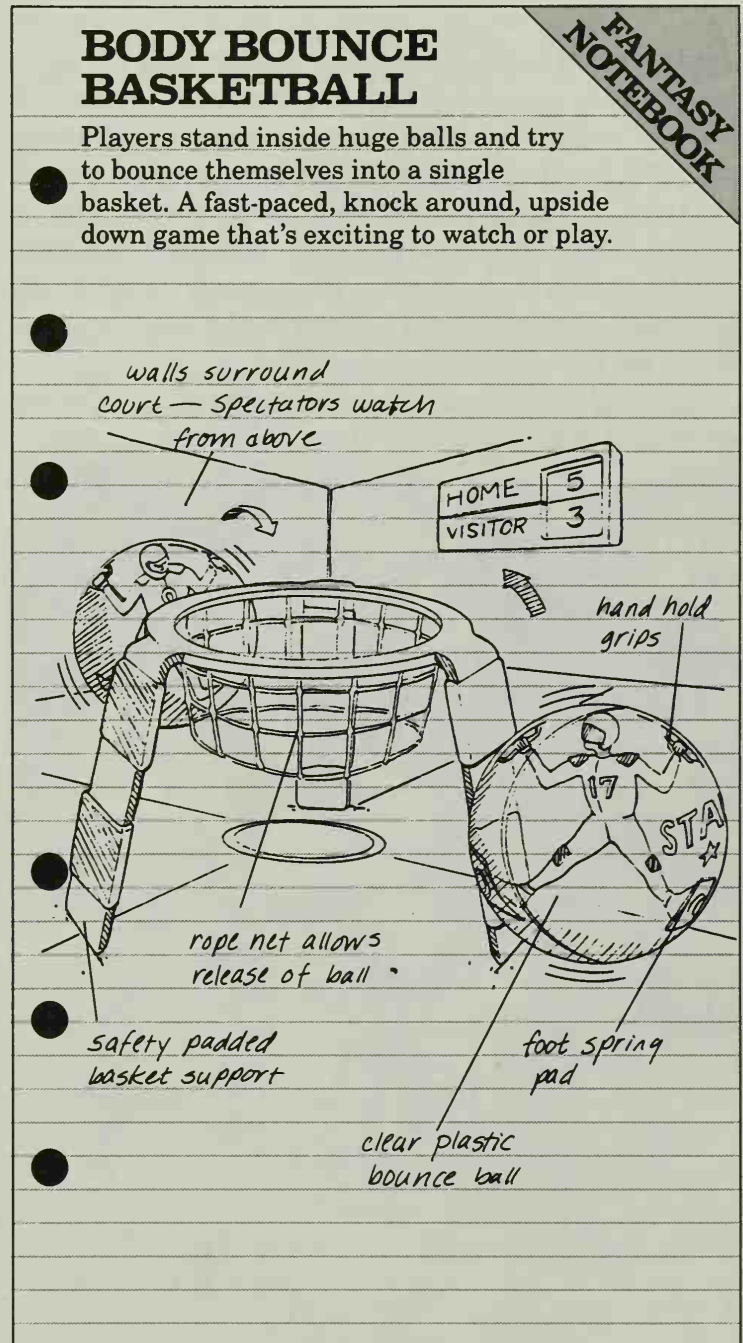 BODY BOUNCE
BASKETBALL
FANTASY
NOTEBOOK
Players stand inside huge balls and try
to bounce themselves into a single
basket. A fast-paced, knock around, upside
down game that's exciting to watch or play.
walls surround
court — Spectators watch
from above
HOME 5
VISITOR 3
hand hold
grips
17
STA
rope net allows
release of ball
safety padded
basket support
foot spring
pad
clear plastic
bounce ball